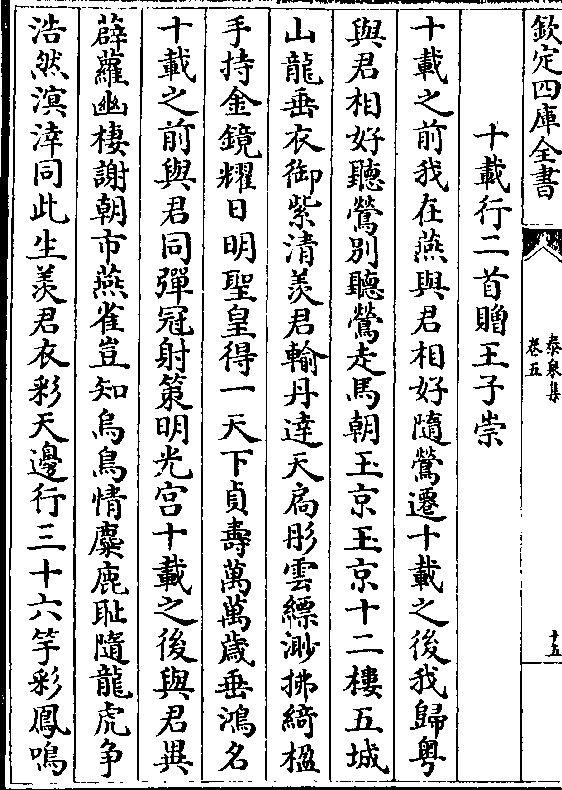 欽定四庫全書
泰泉集
卷五
十五
十載行二首贈王子崇
十載之前我在燕與君相好隨鶯遷十載之後我歸粤
與君相好聽鶯別聽鶯走馬朝玉京玉京十二樓五城
山龍垂衣御紫清羡君輸丹達天扃彤雲縹渺拂綺楹
手持金鏡耀日明聖皇得一天下貞壽萬萬歲垂鴻名
十載之前與君同彈冠射策明光宫十載之後與君異
薜蘿幽棲謝朝市燕雀豈知烏鳥情麋鹿恥隨龍虎争
浩然溟涬同此生羡君衣彩天邊行三十六竽彩鳳鳴